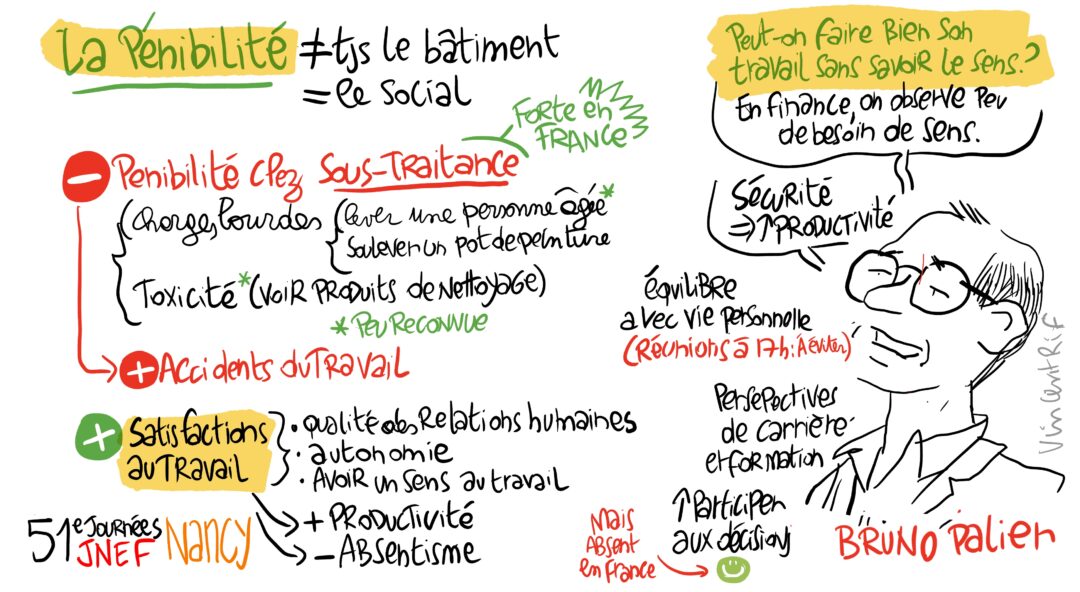 La Pénibilité ≠ tjs le bâtiment
= le social
Forte en
FRANCE
Pénibilité chez Sous-Traitance
Charges lourdes
lever une personne âgée*
soulever un pot de peinture
Toxicité* (voir produits de nettoyage)
* Peu reconnue
+ Accidents du Travail
+ Satisfactions
au travail
• qualité des Relations humaines
• autonomie
• Avoir un sens au travail
+ Productivité
- Absentisme
51e Journées
JNEF
Nancy
Peut-on faire Bien Son
travail sans savoir le sens?
En finance, on observe peu
de besoin de sens.
Sécurité
⇒ ↑ Productivité
équilibre
avec vie personnelle
(Réunions à 17h: à éviter)
Persepectives
de carrière
et formation
↑ Participer
aux décisions
Mais
Absent
en France
Bruno Palier
VincentRif